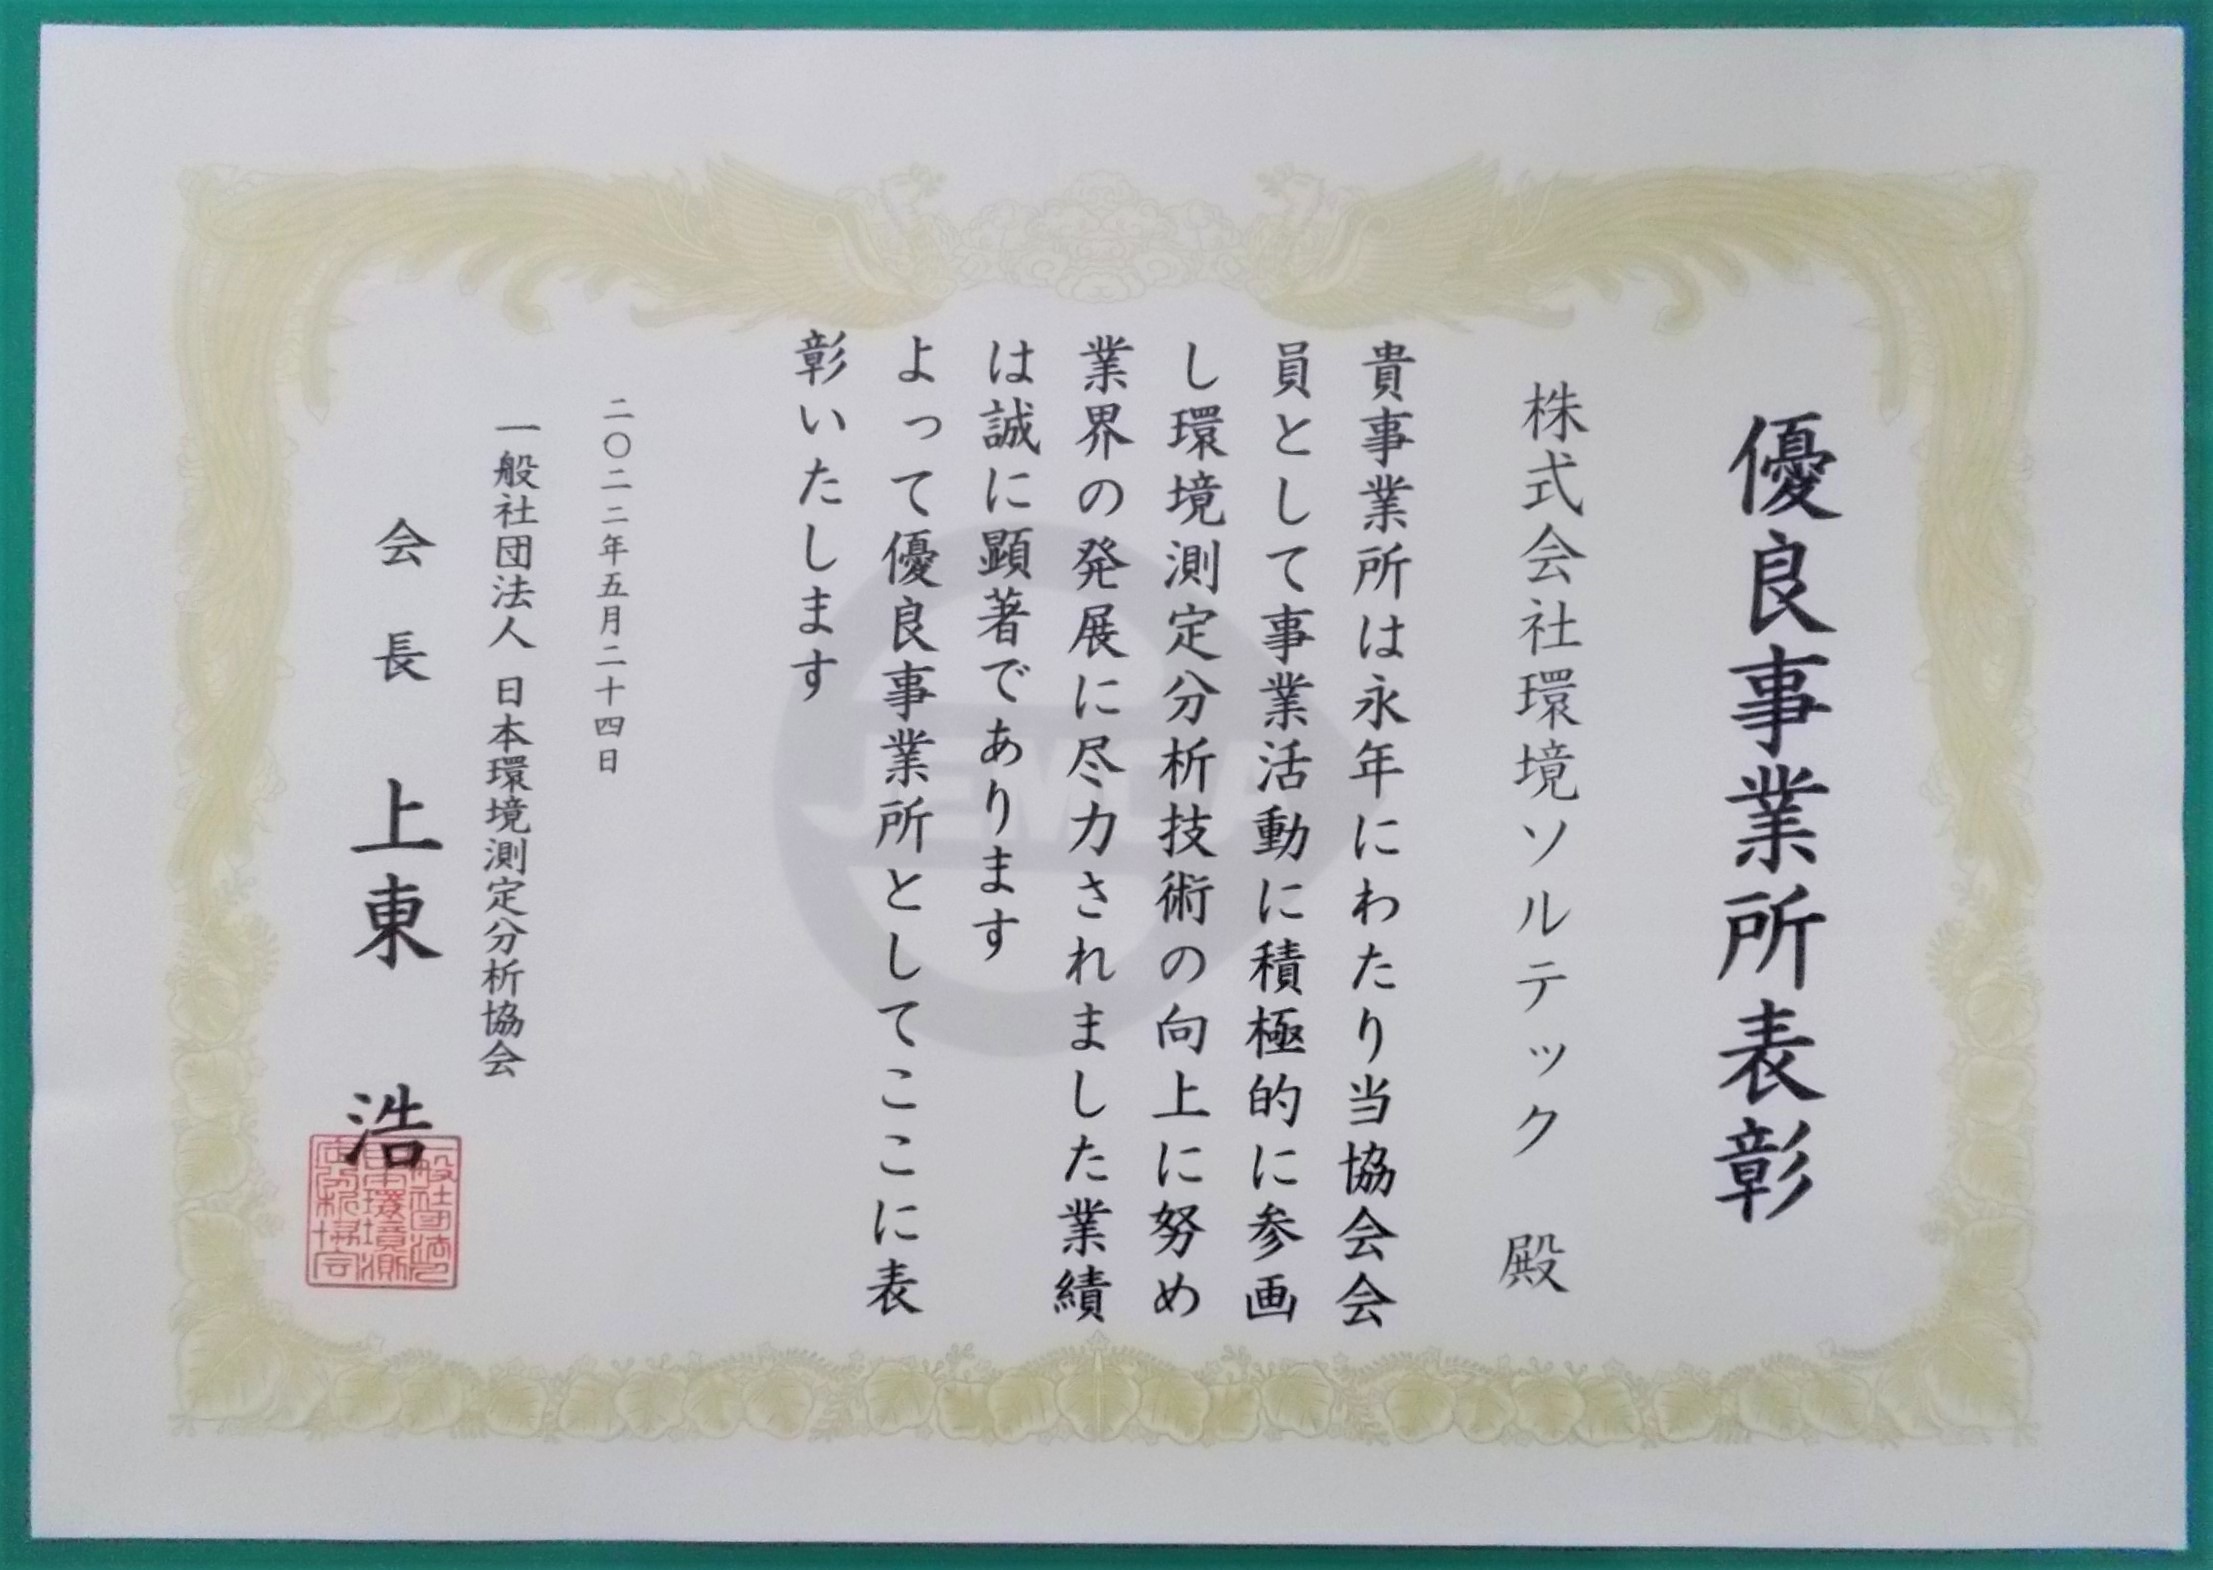 優良事業所表彰
株式会社環境ソルテック 殿
貴事業所は永年にわたり当協会会
員として事業活動に積極的に参画
し環境測定分析技術の向上に努め
業界の発展に尽力されました業績
は誠に顕著であります
よって優良事業所としてここに表
彰いたします
二〇二二年五月二十四日
一般社団法人 日本環境測定分析協会
会長 上東 浩
JEMCA